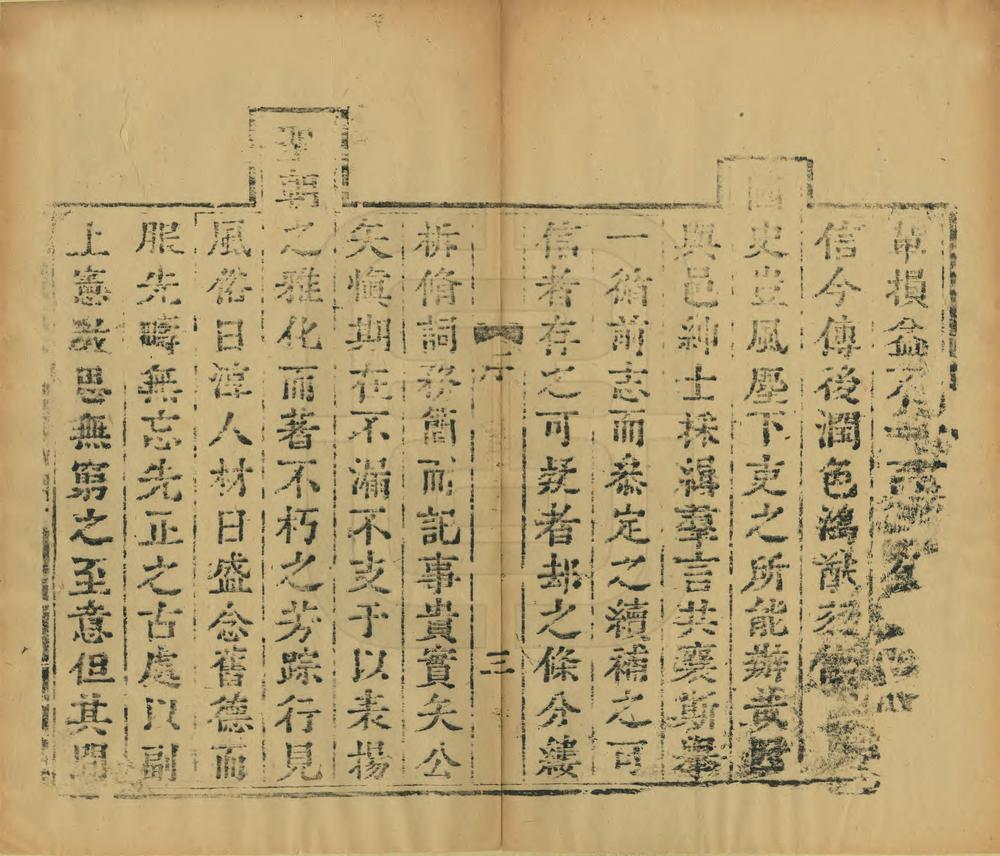 損益不
信今傳後潤色鴻猷
國史豈風塵下吏之所能辦責
與邑紳士採緝羣言共襄斯舉
一循前志而叅定之續補之可
信者存之可疑者却之條分縷
序 三
析脩詞務簡而記事貴實矣公
矣愼期在不漏不支于以表揚
聖朝之雅化而著不朽之芳踪行見
風俗日淳人材日盛念舊德而
服先疇無忘先正之古處以副
上憲敎思無窮之至意但其間